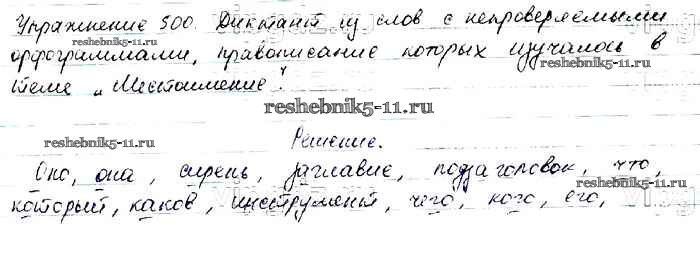 Упражнение 500. Диктант из слов с непроверяемыми
reshebnik5-11.ru
орфограммами, правописание которых изучалось в
reshebnik5-11.ru
теме "Местоимение".
reshebnik5-11.ru
reshebnik5-11.ru
Решение.
Оно, она, сирень, заглавие, подзаголовок, что,
reshebnik5-11.ru
который, каков, инструмент, чего, кого, его,